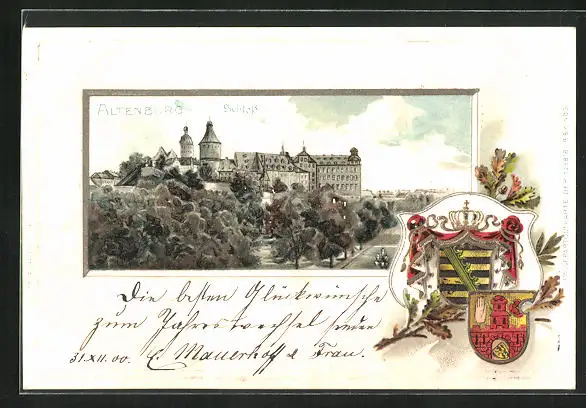 ALTENBURG Schloß
Die besten Glückwünsche
zum Jahreswechsel senden
31.XII.00. C. Mauerhoff & Frau.